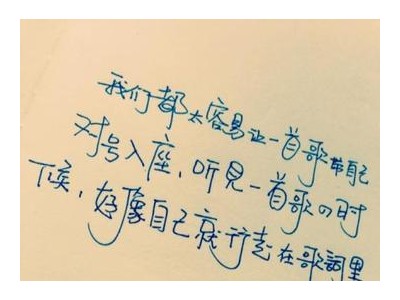 我们都太容易让一首歌带自己
对号入座，听見一首歌の时
候，好像自己就行走在歌詞里